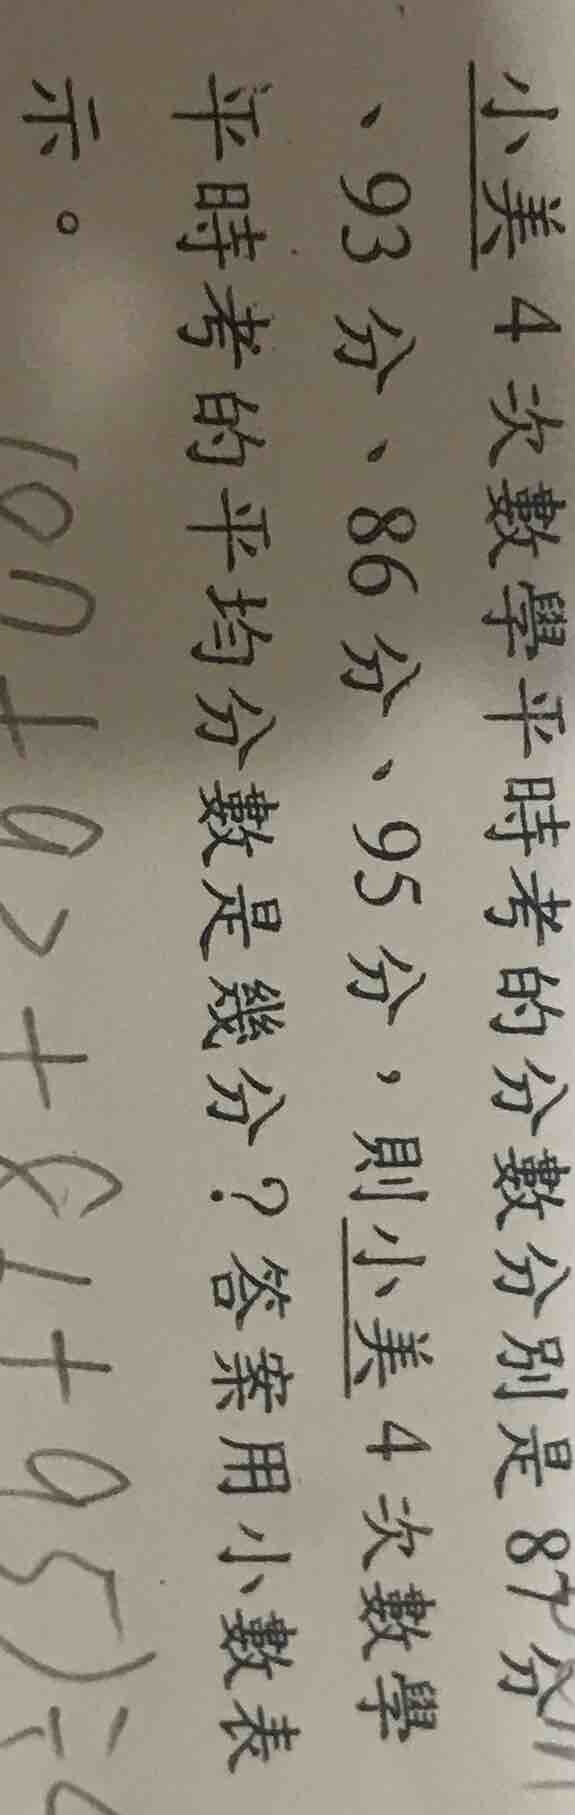 小美4次數學平時考的分數分別是87分
、93分、86分、95分,則小美4次數學
平時考的平均分數是幾分?答案用小數表
示。